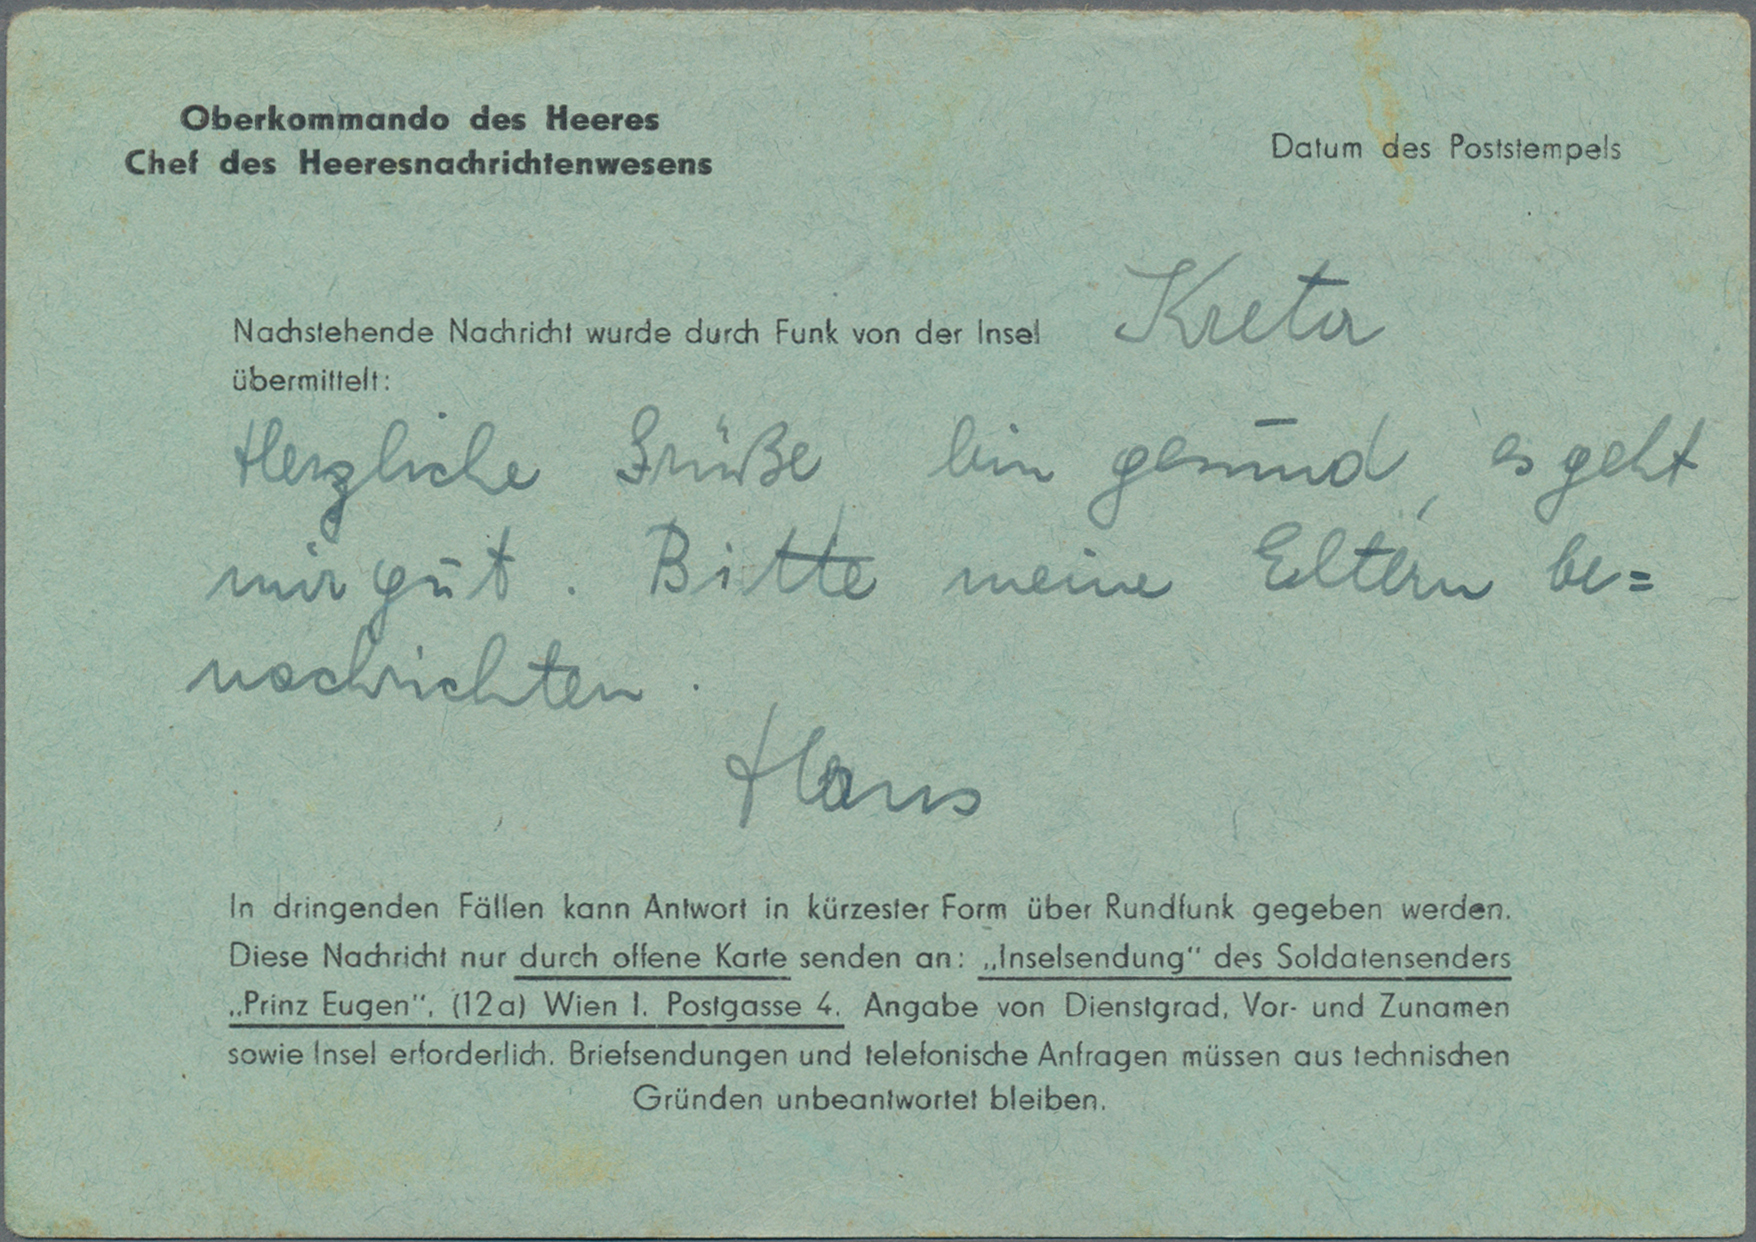 Oberkommando des Heeres
Chef des Heeresnachrichtenwesens
Datum des Poststempels
Nachstehende Nachricht wurde durch Funk von der Insel Kreta
übermittelt:
Herzliche Grüße bin gesund, es geht
mir gut. Bitte meine Eltern be=
nachrichten.
Hans
In dringenden Fällen kann Antwort in kürzester Form über Rundfunk gegeben werden.
Diese Nachricht nur durch offene Karte senden an: „Inselsendung“ des Soldatensenders
„Prinz Eugen“, (12a) Wien I. Postgasse 4. Angabe von Dienstgrad, Vor- und Zunamen
sowie Insel erforderlich. Briefsendungen und telefonische Anfragen müssen aus technischen
Gründen unbeantwortet bleiben.